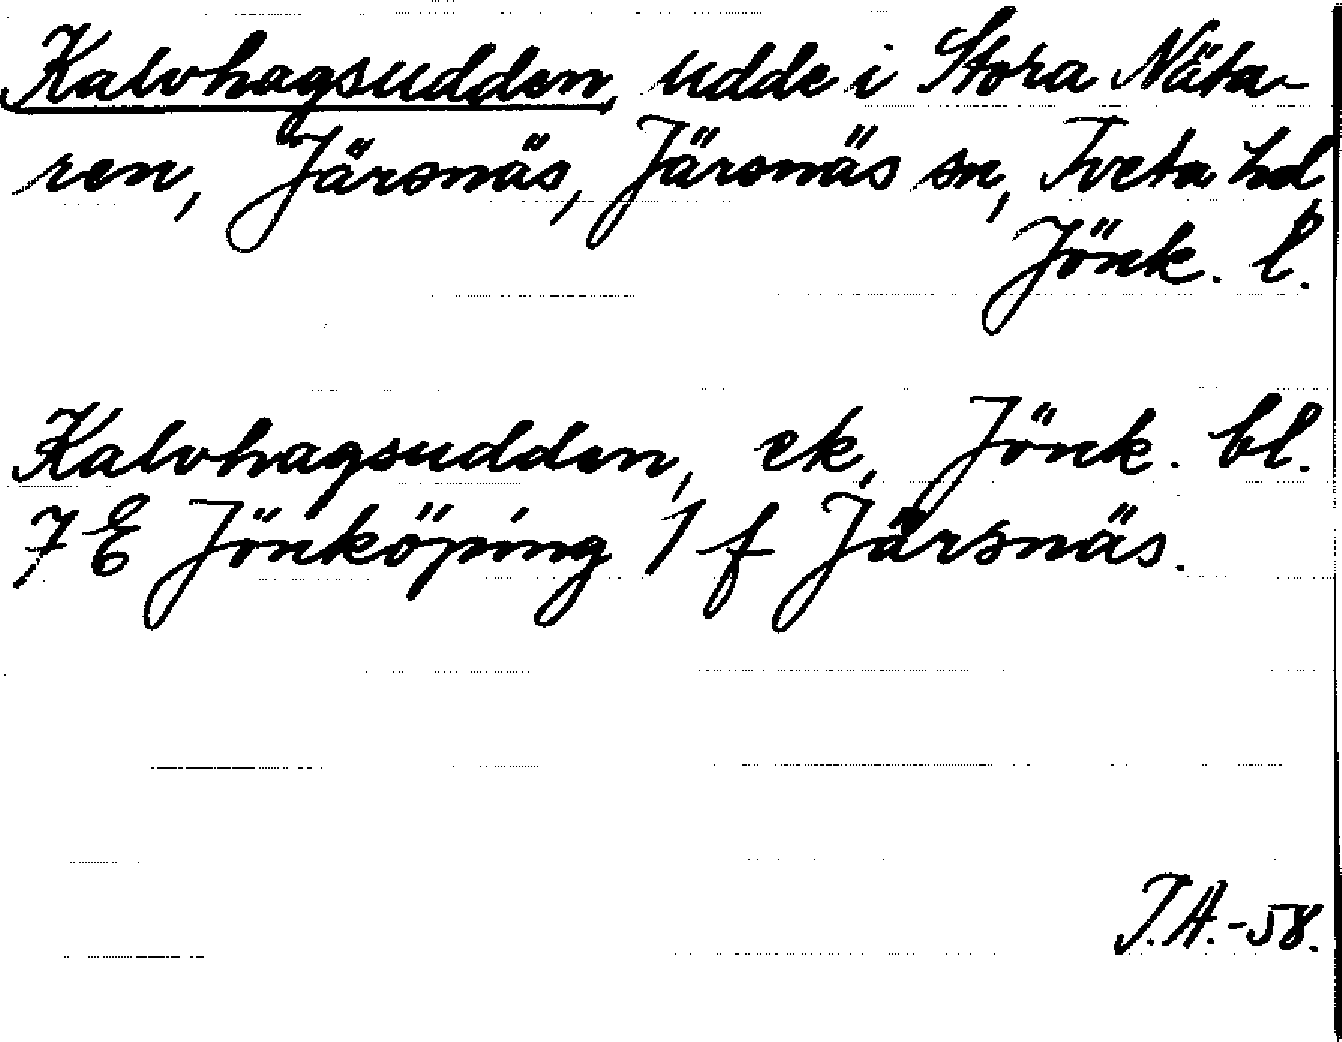 Kalvhagsudden, udde i Stora Näta-
ren, Järsnäs, Järsnäs sn, Tveta hd
Jönk. l.
Kalvhagsudden, ek, Jönk. bl.
7 E Jönköping 1 f Järsnäs.
T.A.-58.